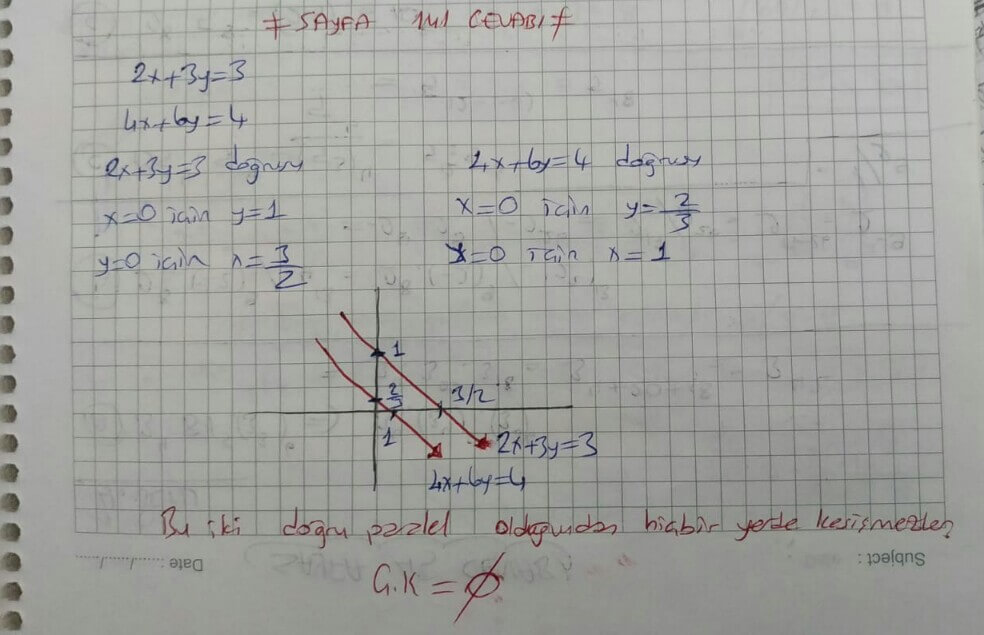 ≠ SAYFA 141 CEVABI ≠
2x+3y=3
4x+6y=4
2x+3y=3 doğrusu
4x+6y=4 doğrusu
x=0 için y=1
x=0 için y=2/3
y=0 için x=3/2
x=0 için x=1
1
2/3
3/2
1
2x+3y=3
4x+6y=4
Bu iki doğru paralel olduğundan hiçbir yerde kesişmezler
Date : ....../....../......
Subject :
Ç.K = ∅